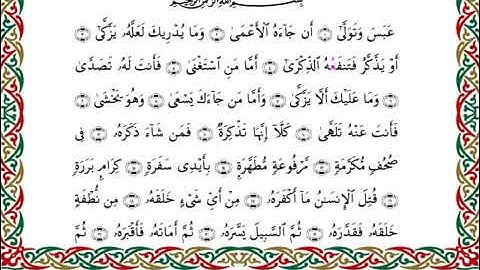 بسم الله الرحمن الرحيم
عَبَسَ وَتَوَلَّىٰٓ ۝ أَن جَآءَهُ ٱلْأَعْمَىٰ ۝ وَمَا يُدْرِيكَ لَعَلَّهُۥ يَزَّكَّىٰٓ ۝
أَوْ يَذَّكَّرُ فَتَنفَعَهُ ٱلذِّكْرَىٰٓ ۝ أَمَّا مَنِ ٱسْتَغْنَىٰ ۝ فَأَنتَ لَهُۥ تَصَدَّىٰ
۝ وَمَا عَلَيْكَ أَلَّا يَزَّكَّىٰ ۝ وَأَمَّا مَن جَآءَكَ يَسْعَىٰ ۝ وَهُوَ يَخْشَىٰ ۝
فَأَنتَ عَنْهُ تَلَهَّىٰ ۝ كَلَّآ إِنَّهَا تَذْكِرَةٌ ۝ فَمَن شَآءَ ذَكَرَهُۥ ۝ فِى
صُحُفٍ مُّكَرَّمَةٍ ۝ مَّرْفُوعَةٍ مُّطَهَّرَةٍۭ ۝ بِأَيْدِى سَفَرَةٍ ۝ كِرَامٍۭ بَرَرَةٍ
۝ قُتِلَ ٱلْإِنسَٰنُ مَآ أَكْفَرَهُۥ ۝ مِنْ أَىِّ شَىْءٍ خَلَقَهُۥ ۝ مِن نُّطْفَةٍ
خَلَقَهُۥ فَقَدَّرَهُۥ ۝ ثُمَّ ٱلسَّبِيلَ يَسَّرَهُۥ ۝ ثُمَّ أَمَاتَهُۥ فَأَقْبَرَهُۥ ۝ ثُمَّ